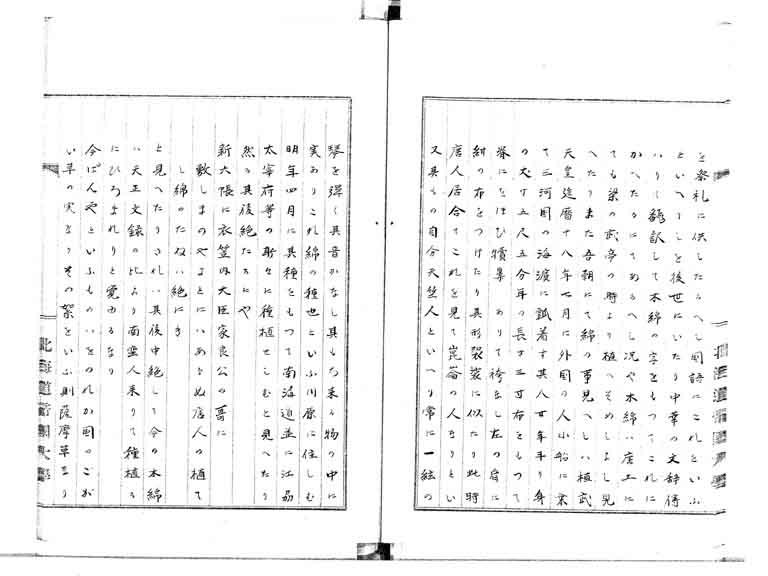 を祭札に供したるへし国語にこれをといふ
といへりしを後世にいたり中華の文辞傳
はりて翻訳して木綿の字をもつてこれに
かへたるにてあるへし况や木綿ハ唐土に
ても梁の武帝の時より植へそめしよし見
へたりまた吾朝にて綿の事見へしハ桓武
天皇延暦十八年七月に外国の人小船に乗
て三河国の海渡に漂着す其人年二十身
の丈五尺五分耳の長サ三寸布をもつて
脊におほひ犢鼻ありて袴なし左の肩に
紺の布をつけたり其形袈裟に似たり此時
唐人居合てこれを見て崑崙の人なりとい
又其もの自分天竺人といへり常に一絃の
琴を弾く其音かなし其もち来る物の中に
実ありこれ綿の種也といふ川原に住しむ
明年四月に其種をもつて南海道並に江州
太宰府等の所々に種植せしむと見へたり
然る其後絶たるにや
新六帳に衣笠内大臣家良公の哥に
敷しまのやまとにハあらぬ唐人の植て
し綿のたねハ絶にき
と見へたりされハ其後中絶して今の木綿
ハ天正文録の比より南蛮人来りて種植る
にひろまれりと覚ゆるなり
今ぱんやといふものハをのれか国のごが
い草の実なりその絮をいふ則薩摩草なり
北海道帝国大学